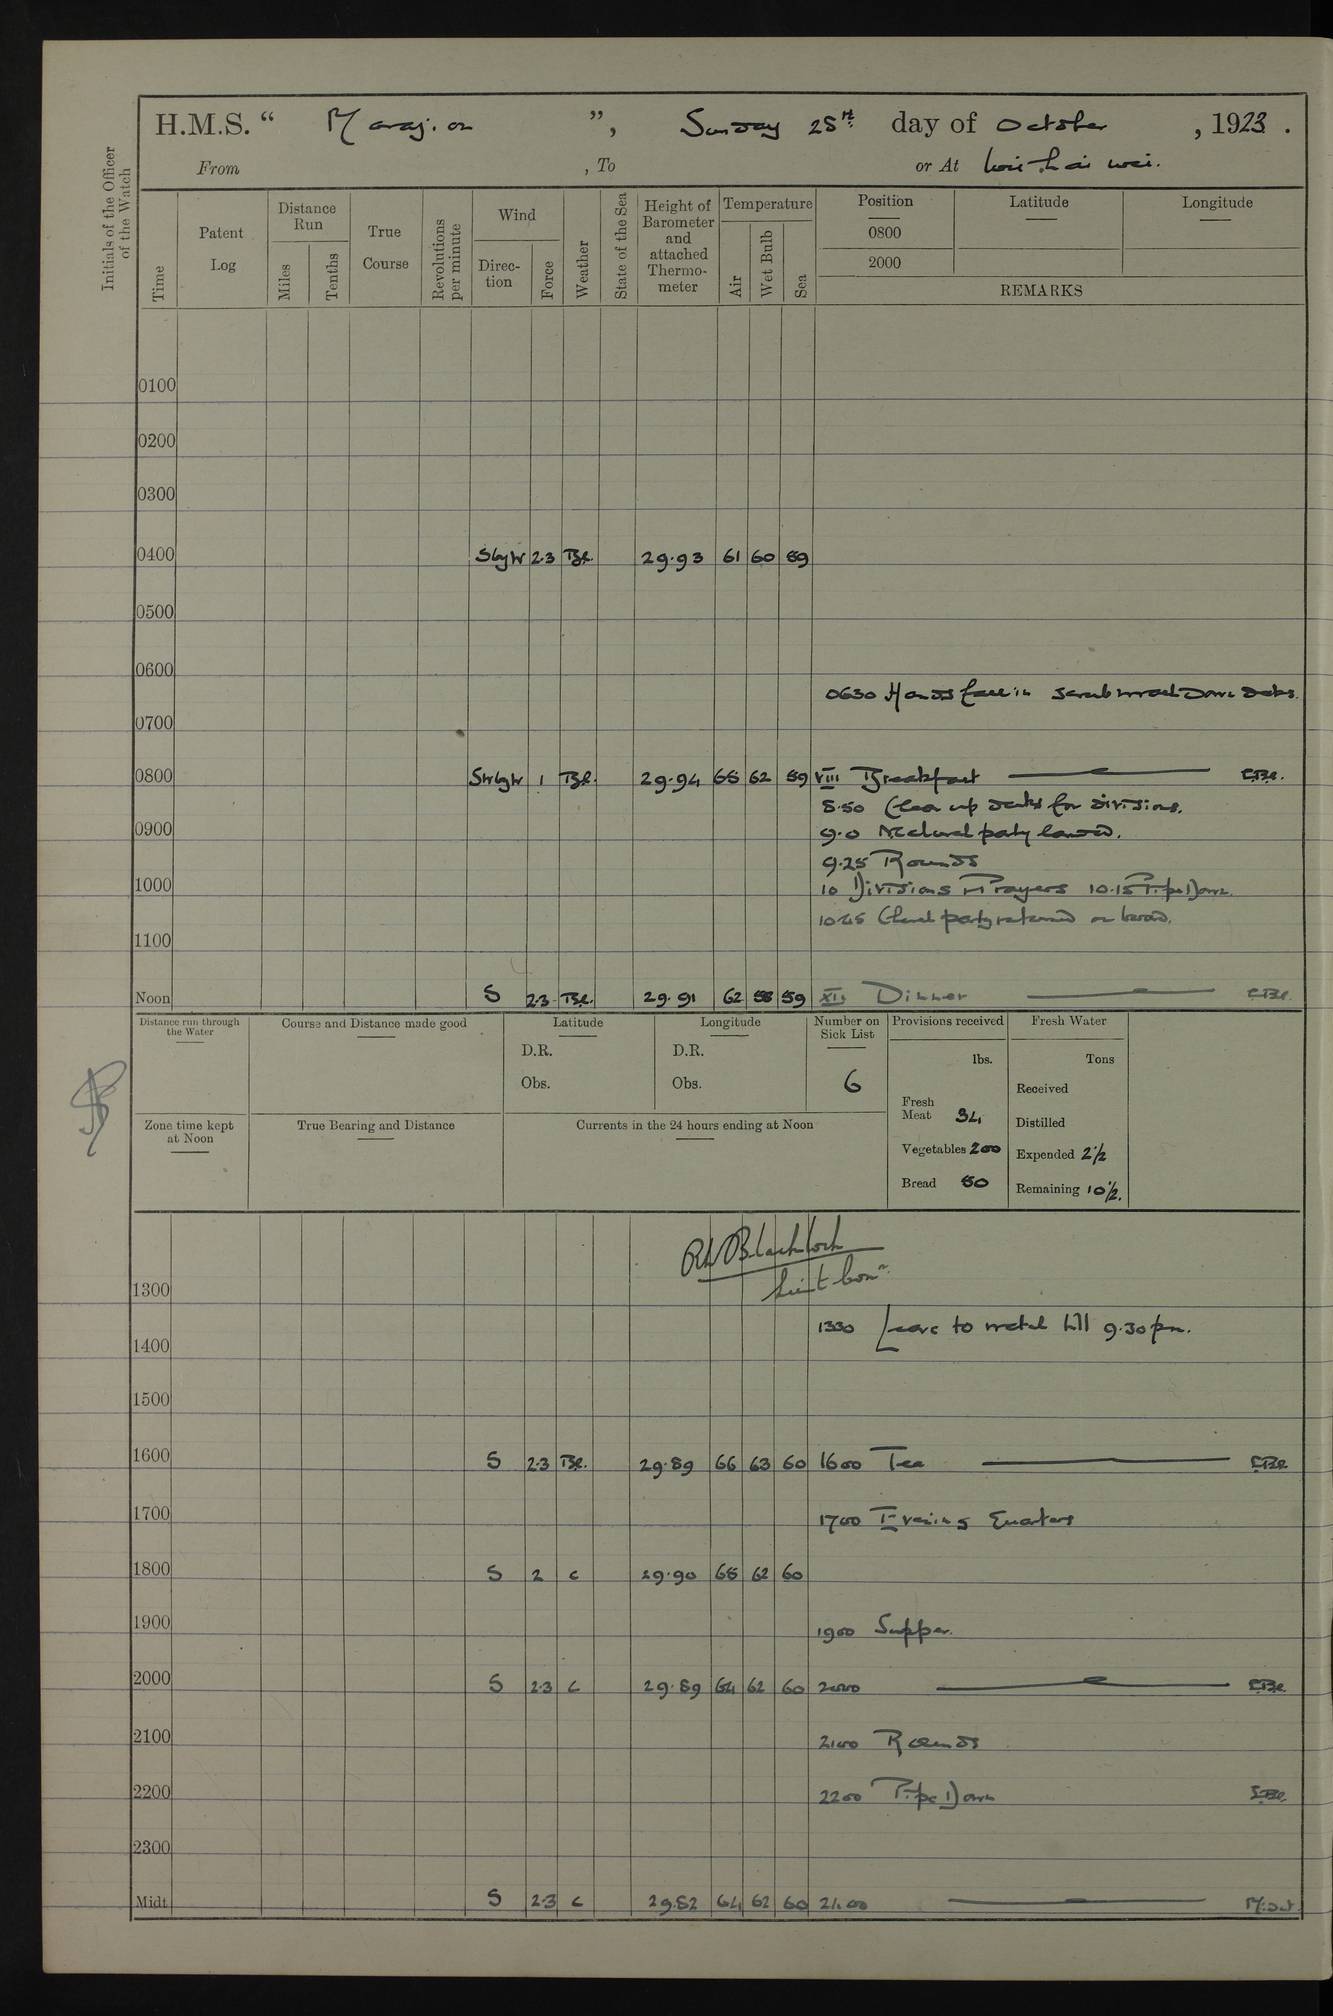 H.M.S. “ Marazion ”, Sunday 28th day of October , 1923 .
From , To or At Wei-hai-wei.
Initials of the Officer of the Watch
Time
Patent Log
Distance Run
Miles
Tenths
True Course
Revolutions per minute
Wind
Direc-tion
Force
Weather
State of the Sea
Height of Barometer and attached Thermo-meter
Temperature
Air
Wet Bulb
Sea
Position
0800
2000
Latitude
Longitude
REMARKS
0100
0200
0300
0400 SbyW 2.3 Bc. 29.93 61 60 59
0500
0600
0630 Hands fall in scrub & wash down decks.
0700
0800 SWbyW 1 Bc. 29.94 65 62 59 VIII Breakfast
8.50 Clear up decks for divisions.
0900
9.0 R.C. church party landed.
9.25 Rounds
1000 10 Divisions & Prayers 10.15 Pipe Down.
10.45 Church party returned on board.
1100
Noon S 2.3 Bc. 29.91 62 58 59 XII Dinner
Distance run through the Water
Course and Distance made good
Latitude
D.R.
Obs.
Longitude
D.R.
Obs.
Number on Sick List
6
Provisions received
lbs.
Fresh Meat 34
Vegetables 200
Bread 50
Fresh Water
Tons
Received
Distilled
Expended 2½
Remaining 10½.
Zone time kept at Noon
True Bearing and Distance
Currents in the 24 hours ending at Noon
Blacklock
Lieut Comr.
1300
1330 Leave to watch till 9.30 pm.
1400
1500
1600 S 2.3 Bc. 29.89 66 63 60 1600 Tea
1700 1700 Evening Quarters
1800 S 2 c 29.90 65 62 60
1900 1900 Supper.
2000 S 2.3 c 29.89 64 62 60 2000
2100 2100 Rounds
2200 2200 Pipe Down
2300
Midt. S 2.3 c 29.82 64 62 60 2400